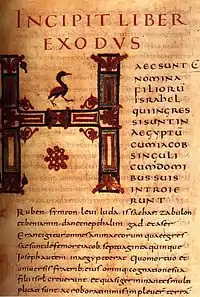 INCIPIT LIBER
EXODVS
HAECSUNT
NOMINA
FILIORŪ
ISRAHEL
QUIINGRES
SISUNTIN
AEGYPTŪ
CUMIACOB
SINGULI
CUMDOMI
BUSSUIS
INTROIE
RUNT
Ruben simeon leui iuda issachar zabulon
et beniamin dan et nepthalim gad et aser
Erant igitur omnes animae eorum quae egres
sae sunt de femore iacob septuaginta quinque
Ioseph autem in aegypto erat Quo mortuo et
uniuersis fratrib; eius omniq; cognatione sua
filii isrl creuerunt et quasi germinantes multi
plicati sunt ac roborati nimis impleuer terrā